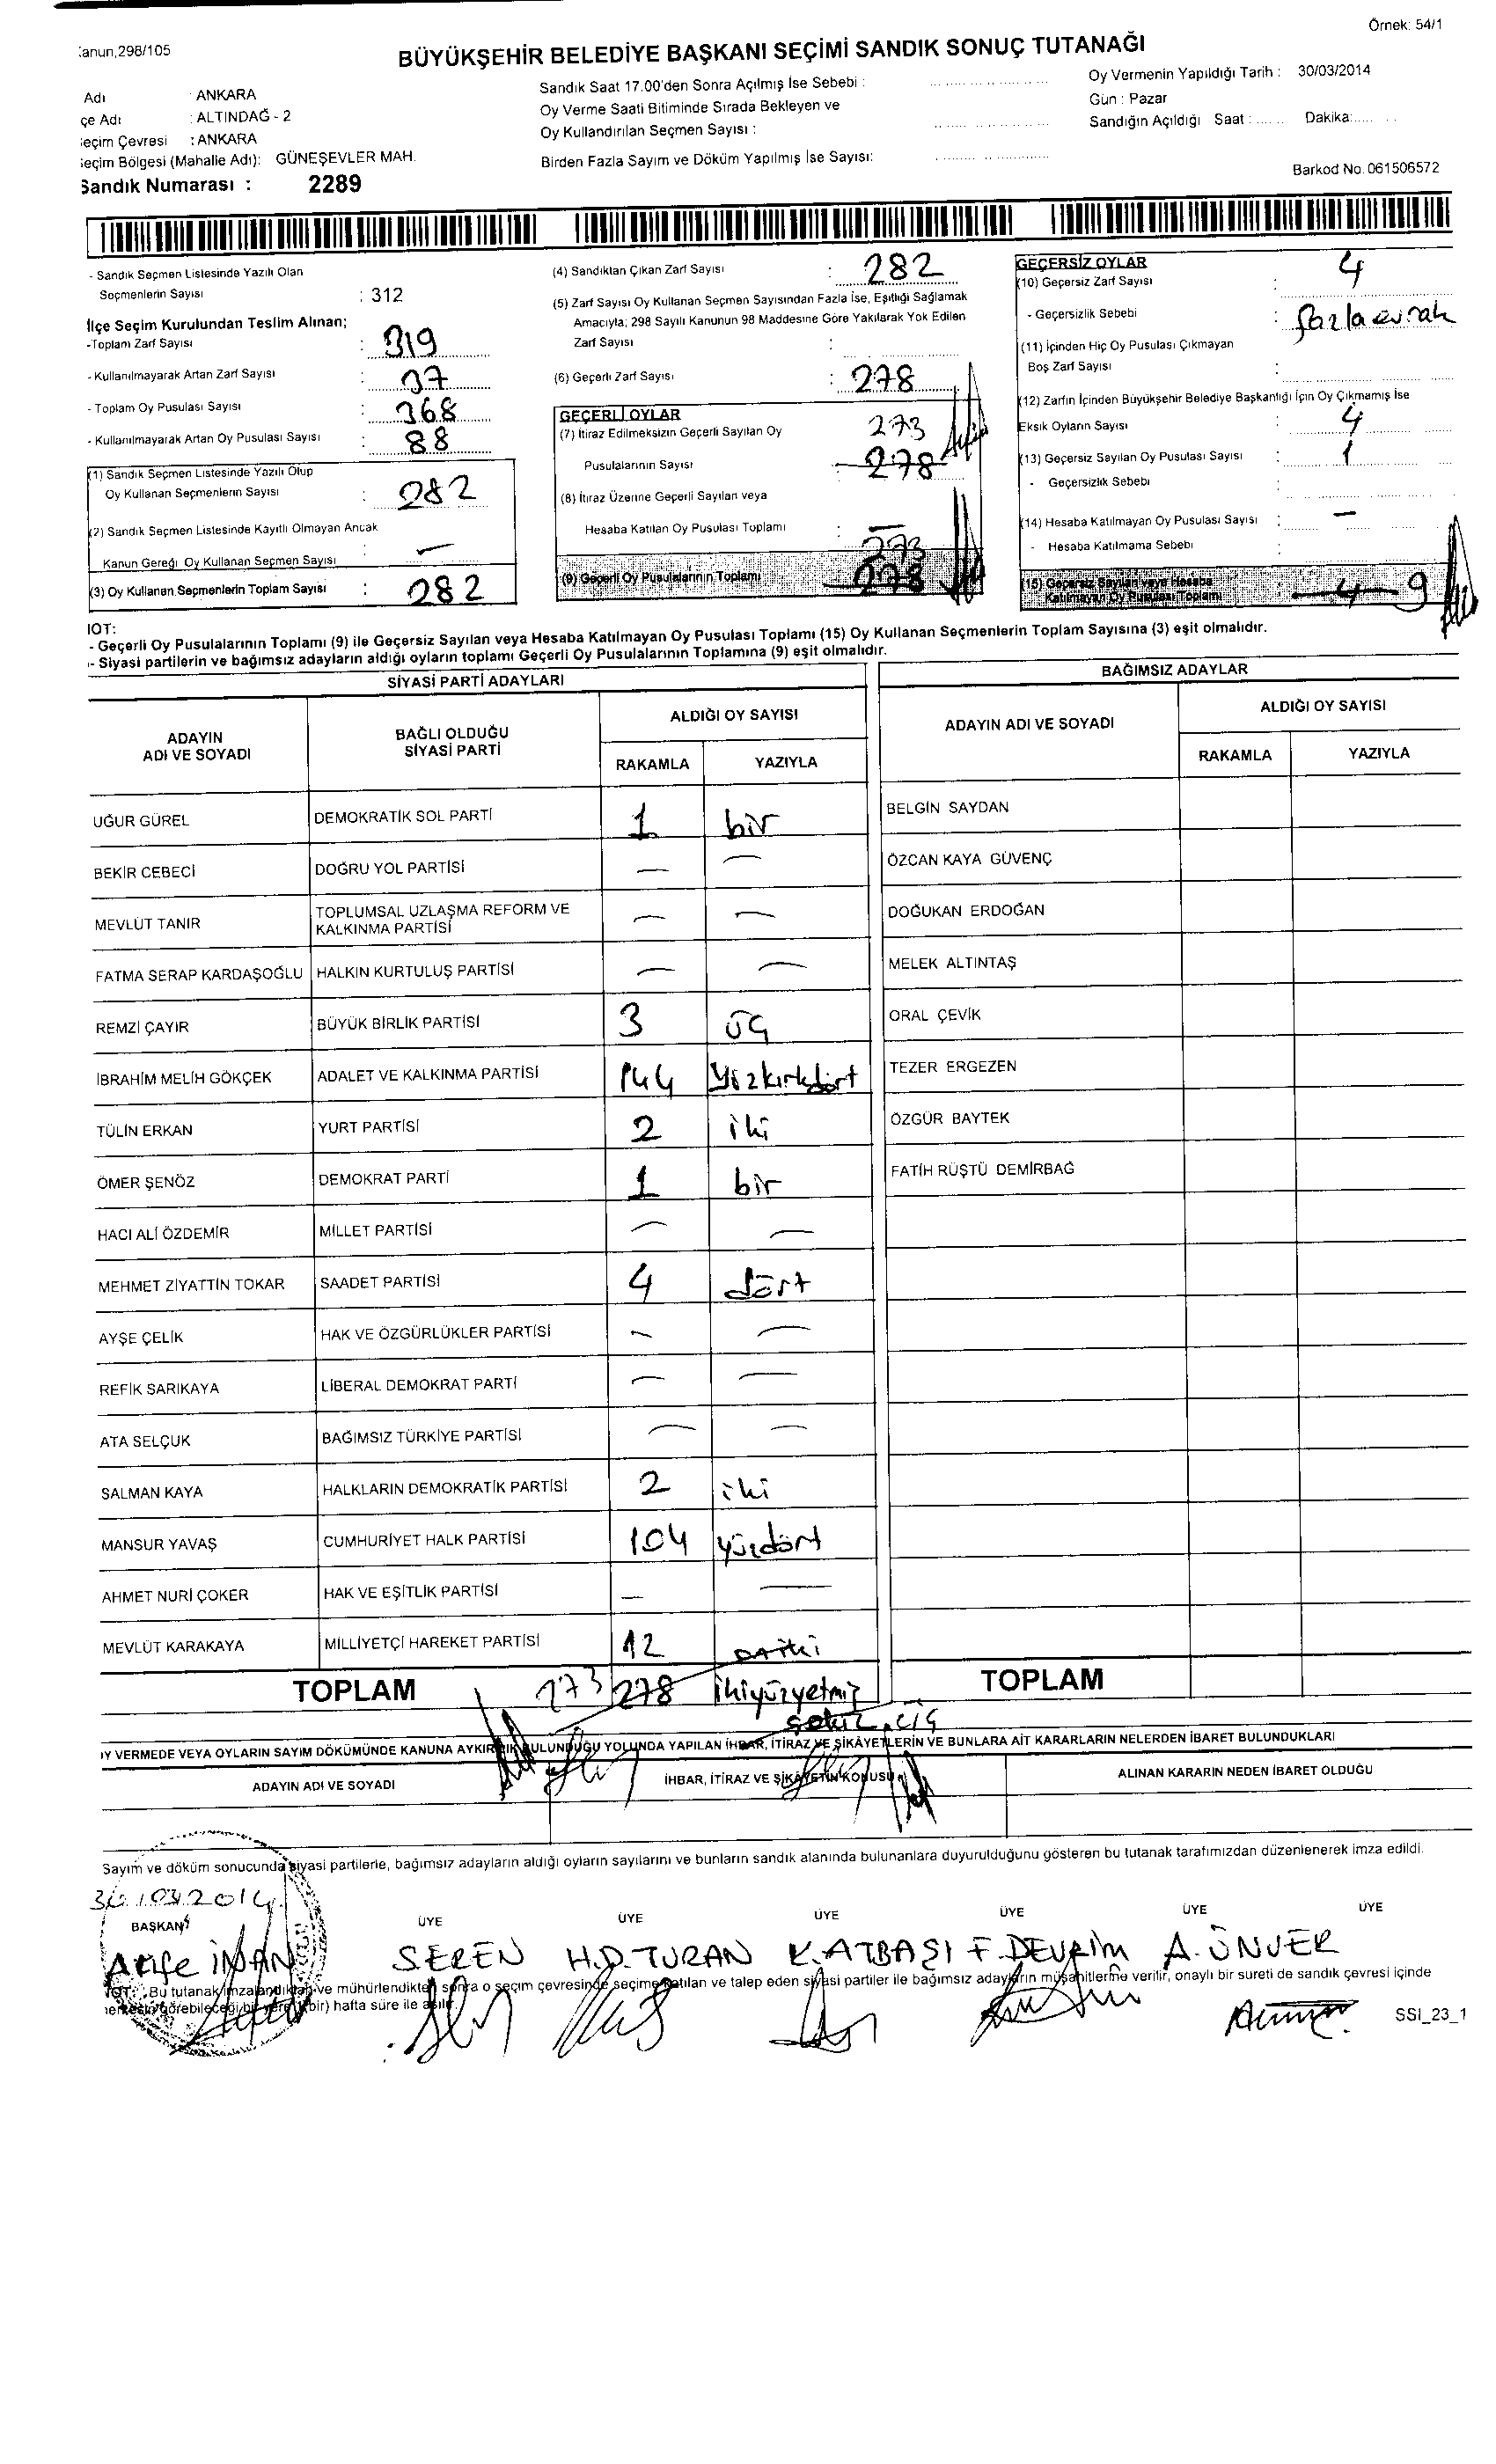 Örnek: 54/1
anun,298/105
BÜYÜKŞEHİR BELEDİYE BAŞKANI SEÇİMİ SANDIK SONUÇ TUTANAĞI
Adı : ANKARA
çe Adı : ALTINDAĞ - 2
eçim Çevresi : ANKARA
eçim Bölgesi (Mahalle Adı): GÜNEŞEVLER MAH.
Sandık Numarası : 2289
Sandık Saat 17.00'den Sonra Açılmış İse Sebebi :
Oy Verme Saati Bitiminde Sırada Bekleyen ve
Oy Kullandırılan Seçmen Sayısı :
Birden Fazla Sayım ve Döküm Yapılmış İse Sayısı:
Oy Vermenin Yapıldığı Tarih : 30/03/2014
Gün : Pazar
Sandığın Açıldığı Saat : Dakika:
Barkod No.061506572
- Sandık Seçmen Listesinde Yazılı Olan
Seçmenlerin Sayısı : 312
İlçe Seçim Kurulundan Teslim Alınan;
-Toplam Zarf Sayısı : 319
- Kullanılmayarak Artan Zarf Sayısı : 37
- Toplam Oy Pusulası Sayısı : 368
- Kullanılmayarak Artan Oy Pusulası Sayısı : 88
(1) Sandık Seçmen Listesinde Yazılı Olup
Oy Kullanan Seçmenlerin Sayısı : 282
(2) Sandık Seçmen Listesinde Kayıtlı Olmayan Ancak
Kanun Gereği Oy Kullanan Seçmen Sayısı : —
(3) Oy Kullanan Seçmenlerin Toplam Sayısı : 282
(4) Sandıktan Çıkan Zarf Sayısı : 282
(5) Zarf Sayısı Oy Kullanan Seçmen Sayısından Fazla İse, Eşitliği Sağlamak
Amacıyla; 298 Sayılı Kanunun 98 Maddesine Göre Yakılarak Yok Edilen
Zarf Sayısı :
(6) Geçerli Zarf Sayısı : 278
GEÇERLİ OYLAR
(7) İtiraz Edilmeksizin Geçerli Sayılan Oy 273
Pusulalarının Sayısı : 278
(8) İtiraz Üzerine Geçerli Sayılan veya
Hesaba Katılan Oy Pusulası Toplamı : —
273
(9) Geçerli Oy Pusulalarının Toplamı 278
GEÇERSİZ OYLAR
(10) Geçersiz Zarf Sayısı : 4
- Geçersizlik Sebebi : fazla evrak
(11) İçinden Hiç Oy Pusulası Çıkmayan
Boş Zarf Sayısı :
(12) Zarfın İçinden Büyükşehir Belediye Başkanlığı İçin Oy Çıkmamış İse
Eksik Oyların Sayısı : 4
(13) Geçersiz Sayılan Oy Pusulası Sayısı : 1
- Geçersizlik Sebebi :
(14) Hesaba Katılmayan Oy Pusulası Sayısı : —
- Hesaba Katılmama Sebebi :
(15) Geçersiz Sayılan veya Hesaba
Katılmayan Oy Pusulası Toplamı 4 9
IOT:
- Geçerli Oy Pusulalarının Toplamı (9) ile Geçersiz Sayılan veya Hesaba Katılmayan Oy Pusulası Toplamı (15) Oy Kullanan Seçmenlerin Toplam Sayısına (3) eşit olmalıdır.
- Siyasi partilerin ve bağımsız adayların aldığı oyların toplamı Geçerli Oy Pusulalarının Toplamına (9) eşit olmalıdır.
SİYASİ PARTİ ADAYLARI
BAĞIMSIZ ADAYLAR
ADAYIN ADI VE SOYADI
BAĞLI OLDUĞU SİYASİ PARTİ
ALDIĞI OY SAYISI
RAKAMLA YAZIYLA
ADAYIN ADI VE SOYADI
ALDIĞI OY SAYISI
RAKAMLA YAZIYLA
UĞUR GÜREL DEMOKRATİK SOL PARTİ 1 bir
BEKİR CEBECİ DOĞRU YOL PARTİSİ — —
MEVLÜT TANIR TOPLUMSAL UZLAŞMA REFORM VE KALKINMA PARTİSİ — —
FATMA SERAP KARDAŞOĞLU HALKIN KURTULUŞ PARTİSİ — —
REMZİ ÇAYIR BÜYÜK BİRLİK PARTİSİ 3 üç
İBRAHİM MELİH GÖKÇEK ADALET VE KALKINMA PARTİSİ 144 Yüzkırkdört
TÜLİN ERKAN YURT PARTİSİ 2 iki
ÖMER ŞENÖZ DEMOKRAT PARTİ 1 bir
HACI ALİ ÖZDEMİR MİLLET PARTİSİ — —
MEHMET ZİYATTİN TOKAR SAADET PARTİSİ 4 dört
AYŞE ÇELİK HAK VE ÖZGÜRLÜKLER PARTİSİ — —
REFİK SARIKAYA LİBERAL DEMOKRAT PARTİ — —
ATA SELÇUK BAĞIMSIZ TÜRKİYE PARTİSİ — —
SALMAN KAYA HALKLARIN DEMOKRATİK PARTİSİ 2 iki
MANSUR YAVAŞ CUMHURİYET HALK PARTİSİ 104 yüzdört
AHMET NURİ ÇOKER HAK VE EŞİTLİK PARTİSİ — —
MEVLÜT KARAKAYA MİLLİYETÇİ HAREKET PARTİSİ 12 oniki
BELGİN SAYDAN
ÖZCAN KAYA GÜVENÇ
DOĞUKAN ERDOĞAN
MELEK ALTINTAŞ
ORAL ÇEVİK
TEZER ERGEZEN
ÖZGÜR BAYTEK
FATİH RÜŞTÜ DEMİRBAĞ
TOPLAM 273 278 ikiyüzyetmiş
sekiz üç
TOPLAM
IY VERMEDE VEYA OYLARIN SAYIM DÖKÜMÜNDE KANUNA AYKIRILIK BULUNDUĞU YOLUNDA YAPILAN İHBAR, İTİRAZ VE ŞİKÂYETLERİN VE BUNLARA AİT KARARLARIN NELERDEN İBARET BULUNDUKLARI
ADAYIN ADI VE SOYADI İHBAR, İTİRAZ VE ŞİKÂYETİN KONUSU ALINAN KARARIN NEDEN İBARET OLDUĞU
Sayım ve döküm sonucunda siyasi partilerle, bağımsız adayların aldığı oyların sayılarını ve bunların sandık alanında bulunanlara duyurulduğunu gösteren bu tutanak tarafımızdan düzenlenerek imza edildi.
30.03.2014
BAŞKAN ÜYE ÜYE ÜYE ÜYE ÜYE ÜYE
Atife İNAN SEREN H.D.TURAN K.ATBAŞI F.DEVRİM A.ÜNVER
NOT: Bu tutanak imzalandıktan ve mühürlendikten sonra o seçim çevresinde seçime katılan ve talep eden siyasi partiler ile bağımsız adayların müşahitlerine verilir, onaylı bir sureti de sandık çevresi içinde
herkesin görebileceği bir yere (bir) hafta süre ile asılır.
SSI_23_1